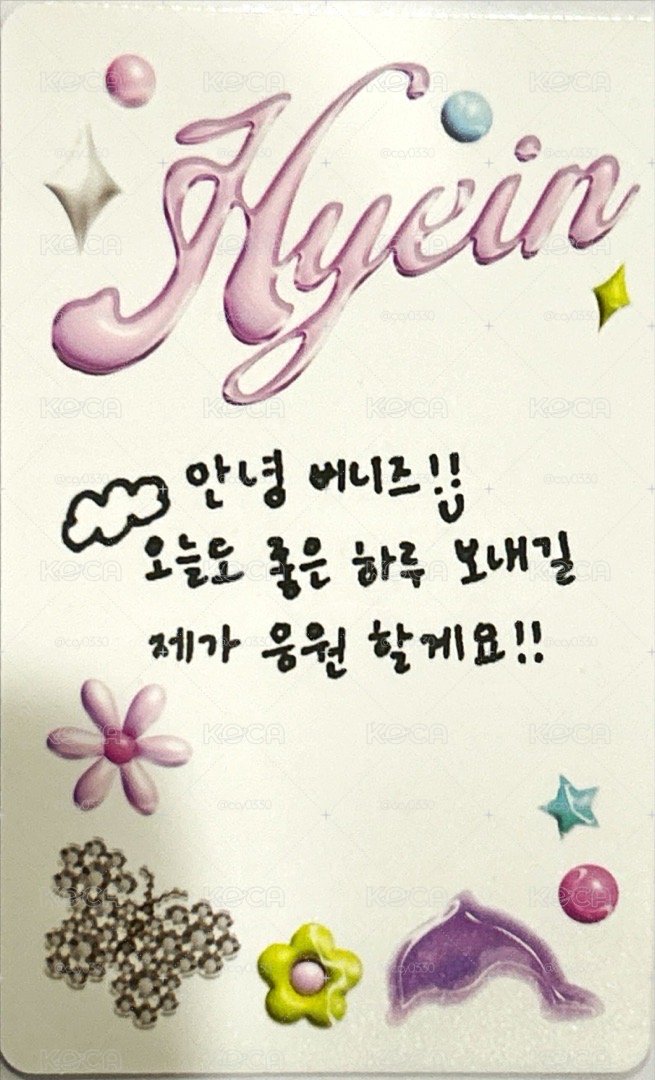 Hyein
안녕 버니즈!!
오늘도 좋은 하루 보내길
제가 응원 할게요!!